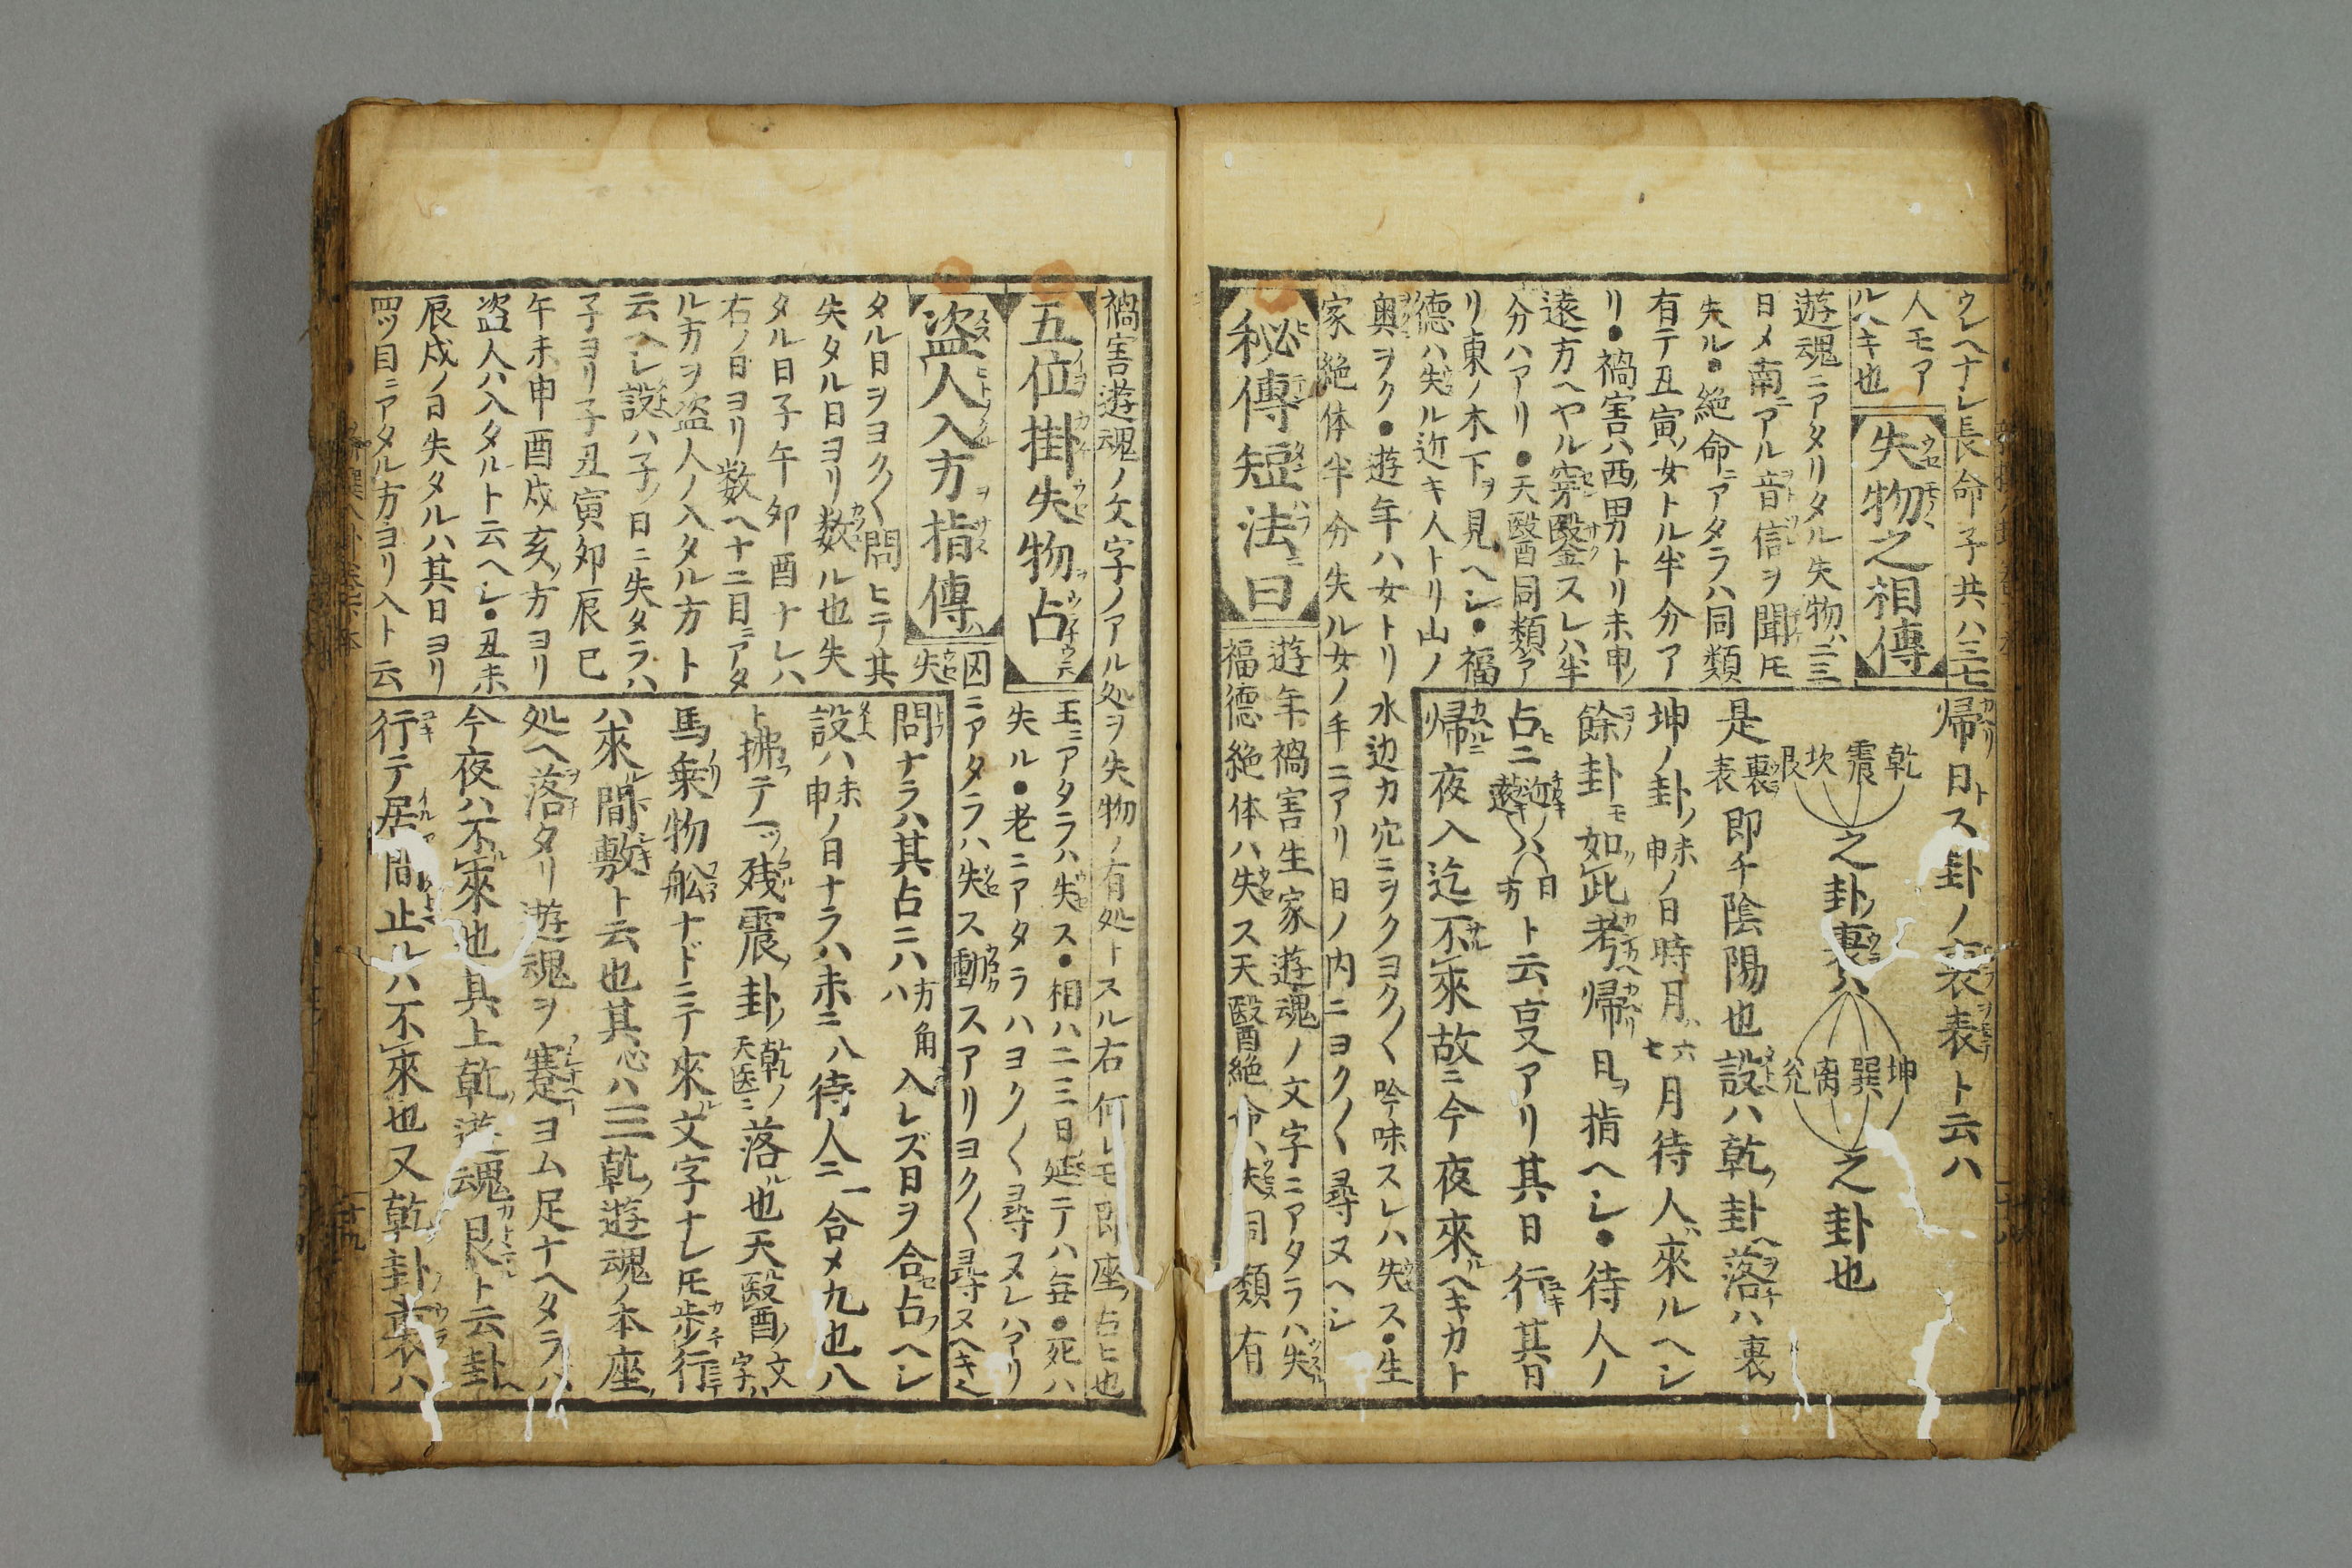 ウレヘナシ長命子共ハ三七
人モア
ルヘキ也
失物之相傳
遊魂ニアタリタル失物ハ二三
日メ南ニアル音信ヲ聞モ
失ル●絶命ニアタラハ同類
有テ丑寅ノ女トル半分ア
リ●禍害ハ西ノ男トリ未申ノ
遠方ヘヤル穿鑿スレハ半
分ハアリ●天醫同類ア
リ東ノ木下ヲ見ヘシ●福
德ハ失ル近キ人トリ山ノ
奥ヲク●遊年ハ女トリ水辺カ穴ニヲクヨク〱吟味スレハ失ス●生
家絶体半分失ル女ノ手ニアリ日ノ内ニヨク〱尋ヌヘシ
帰日トス卦ノ裏表ト云ハ
乾震坎艮之卦ノ裏ハ坤巽离兊之卦也
是裏表即チ陰陽也設ハ乾ノ卦ヘ落ハ裏
坤ノ卦ノ未申ノ日時月ハ六七月待人ガ來ルヘシ
餘卦モ如此考帰日ヲ指ヘシ●待人ノ
占ニ近遠ハ日方ト云亨アリ其日行其日
帰ニ夜入迄不來故ニ今夜來ヘキカト
秘傳短法曰
遊年禍害生家遊魂ノ文字ニアタラハ失
福德絶体ハ失ス天醫絶命ハ失同類有
禍害遊魂ノ文字ノアル処ヲ失物ノ有処トスル右何レモ即座ノ占ヒ也
五位掛失物占
王ニアタラハ失ス●相ハ二三日延テハ毎●死ハ
失ル●老ニアタラハヨク〱尋ヌレハアリ
囚ニアタラハ失ス動スアリヨク〱尋ヌヘキヘ
盗人入方指傳
失
タル日ヲヨク〱問ヒテ其
失タル日ヨリ数ル也失
タル日子午卯酉ナレハ
右ノ日ヨリ数ヘ十二目ニアタ
ル方ヲ盗人ノ入タル方ト
云ヘシ設ハ子ノ日ニ失タラハ
子ヨリ子丑寅卯辰巳
午未申酉戌亥ノ方ヨリ
盗人ハ入タルト云ヘシ●丑未
辰戌ノ日失タルハ其日ヨリ
四ツ目ニアタル方ヨリ入ト云
問ナラハ其占ニハ方角ハ入レズ日ヲ合占ヘシ
設ハ未申ノ日ナラハ未ニ八待人ニ一合メ九也八
ト拂テ一ツ残震ノ卦ノ乾ノ天医ニ落ル也天醫ノ文字ハ
馬乗物舩ナドニテ來ル文字ナレモ歩行
ハ來間敷ト云也其心ハ三乾ノ遊魂ノ本座ノ
処ヘ落タリ遊魂ヲ蹇ヨム足ナヘタラハ
今夜ハ不來也其上乾ノ遊魂艮ト云卦ヘ
行テ居間止ルハ不來也又乾ノ卦ノ裏ハ